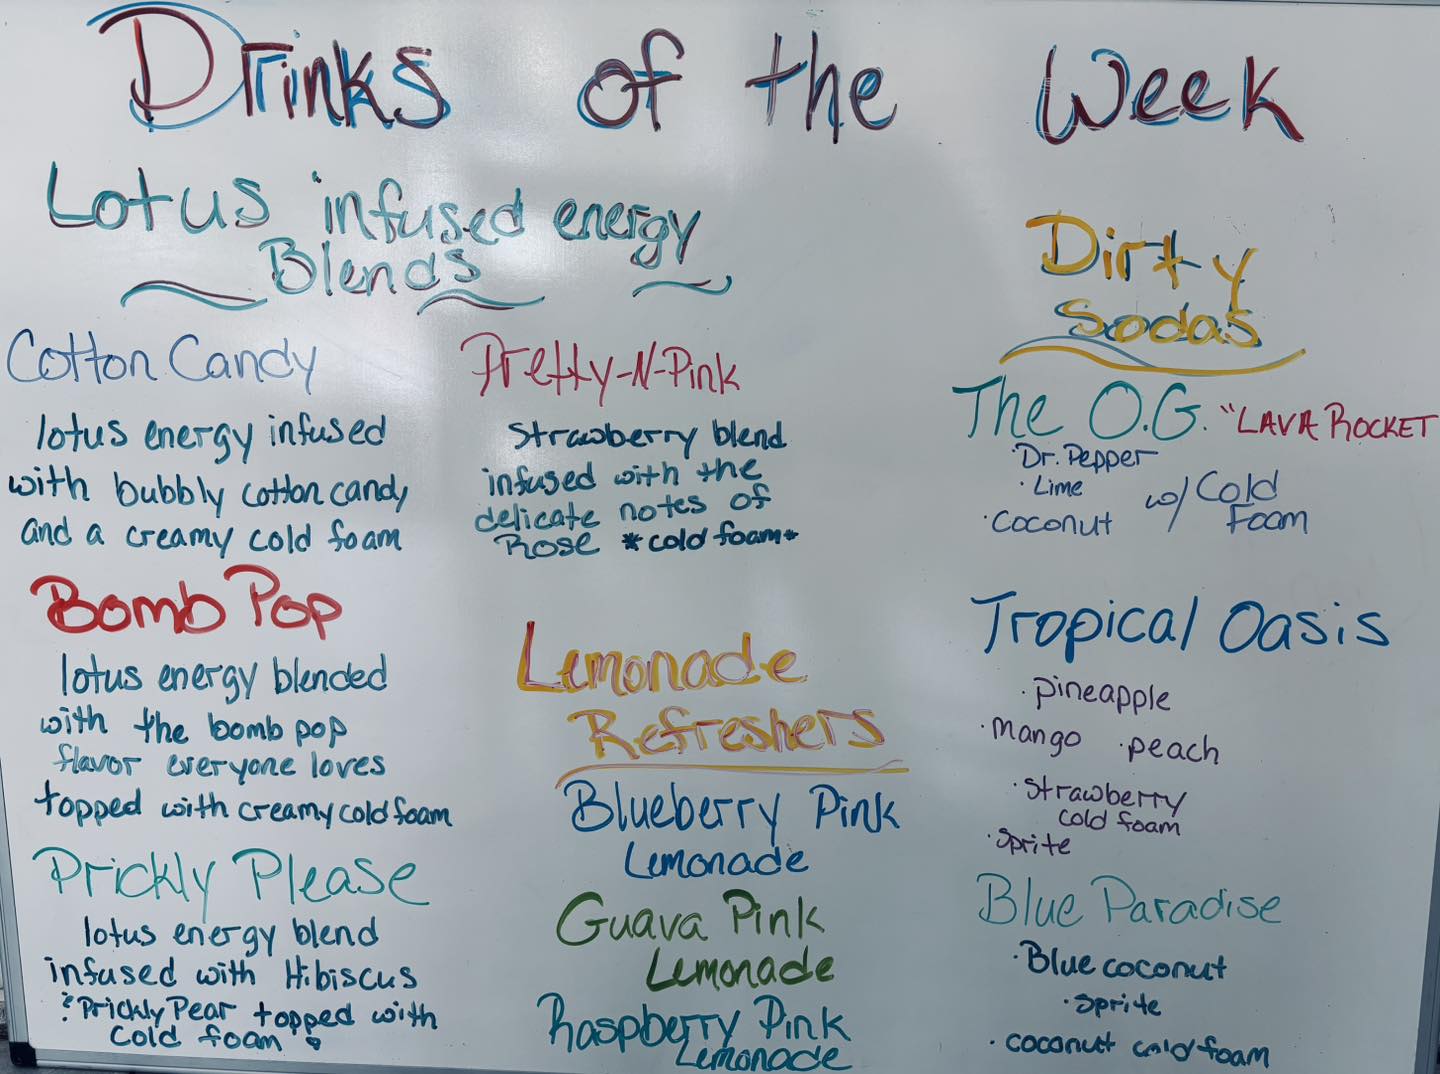 Drinks of the Week
Lotus infused energy
Blends
Cotton Candy
lotus energy infused
with bubbly cotton candy
and a creamy cold foam
Bomb Pop
lotus energy blended
with the bomb pop
flavor everyone loves
topped with creamy cold foam
Prickly Please
lotus energy blend
infused with Hibiscus
& Prickly Pear topped with
cold foam
Pretty-N-Pink
Strawberry blend
infused with the
delicate notes of
Rose *cold foam*
Lemonade
Refreshers
Blueberry Pink
Lemonade
Guava Pink
Lemonade
Raspberry Pink
Lemonade
Dirty
Sodas
The O.G. "LAVA ROCKET
· Dr. Pepper
· Lime
· Coconut w/ Cold
Foam
Tropical Oasis
· pineapple
· Mango · peach
· Strawberry
cold foam
· Sprite
Blue Paradise
· Blue coconut
· Sprite
· coconut cold foam